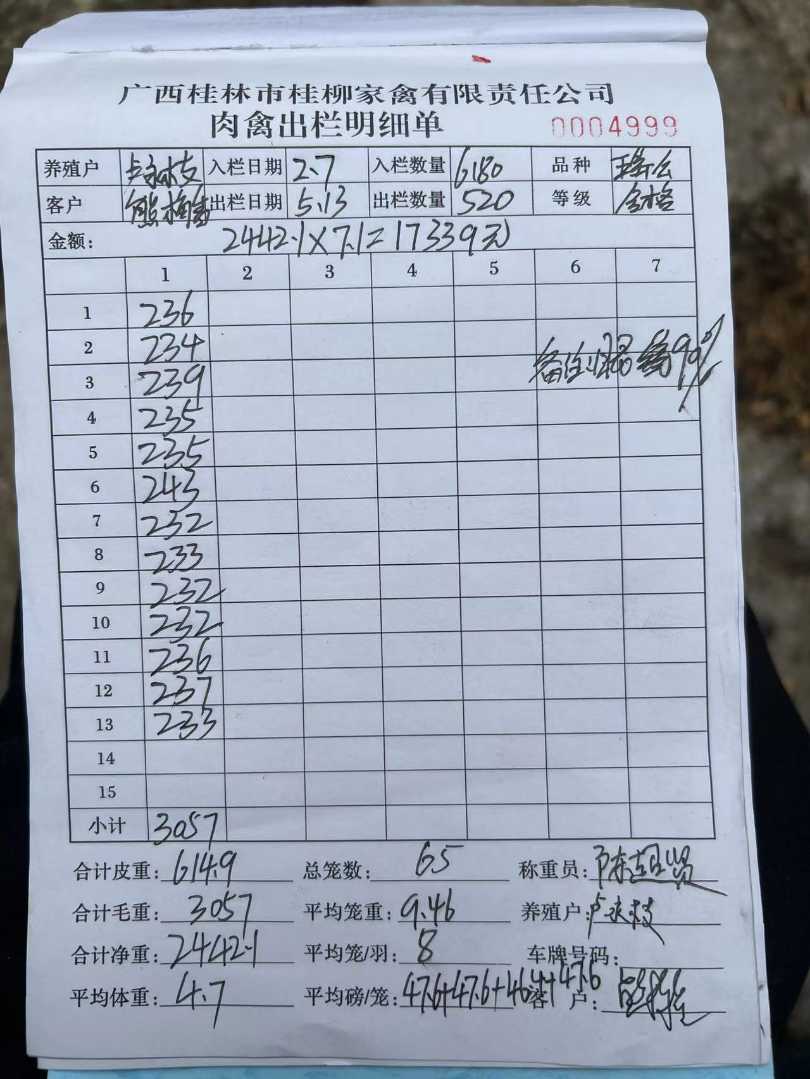 广西桂林市桂柳家禽有限责任公司
肉禽出栏明细单 0004999
养殖户 入栏日期 2.7 入栏数量 6180 品种
客户 出栏日期 5.13 出栏数量 520 等级 合格
金额: 2442.1×7.1=17339元
1 2 3 4 5 6 7
1 236
2 234
3 239
4 235
5 235
6 243
7 232
8 233
9 232
10 232
11 236
12 237
13 233
14
15
备注 99%
小计 3057
合计皮重: 614.9 总笼数: 65 称重员:
合计毛重: 3057 平均笼重: 9.46 养殖户:
合计净重: 2442.1 平均笼/羽: 8 车牌号码:
平均体重: 4.7 平均磅/笼: 47.6+47.6+46.4+47.6 客户: